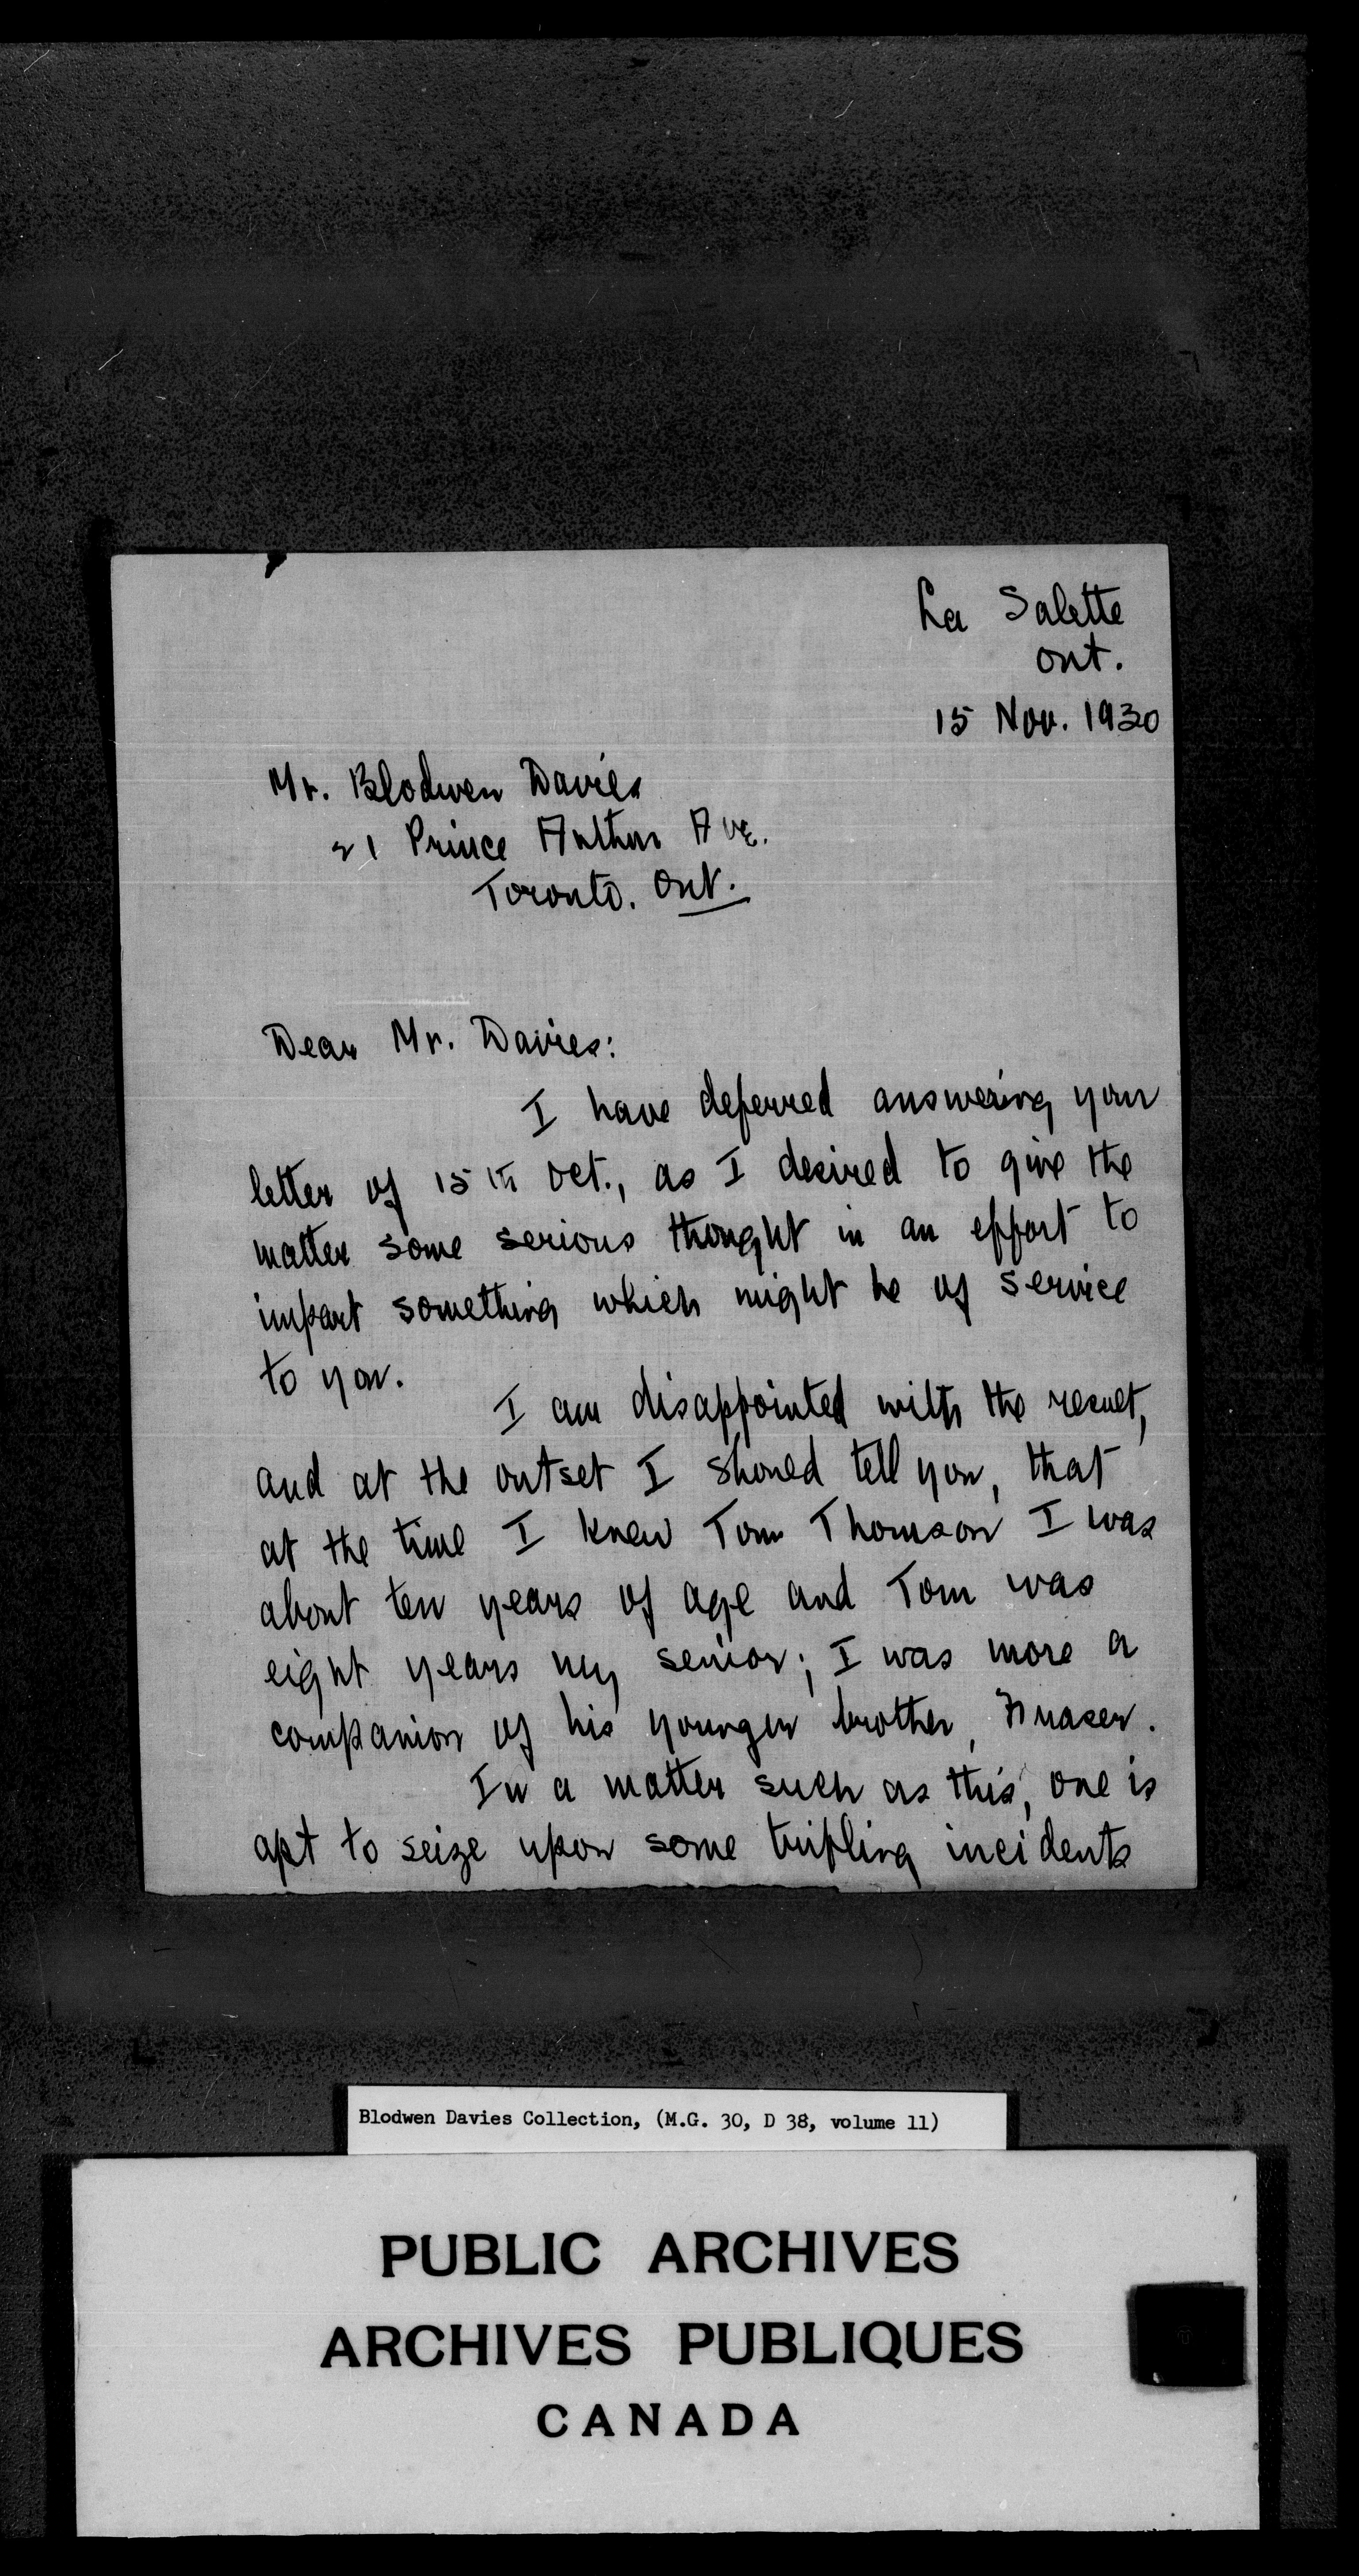 La Salette
Ont.
15 Nov. 1930
Mr. Blodwen Davies
21 Prince Arthur Ave.
Toronto. Ont.
Dear Mr. Davies:
I have deferred answering your
letter of 15th Oct., as I desired to give the
matter some serious thought in an effort to
impart something which might be of service
to you.
I am disappointed with the result,
and at the outset I should tell you, that
at the time I knew Tom Thomson I was
about ten years of age and Tom was
eight years my senior; I was more a
companion of his younger brother, Fraser.
In a matter such as this, one is
apt to seize upon some trifling incidents
Blodwen Davies Collection, (M.G. 30, D 38, volume 11)
PUBLIC ARCHIVES
ARCHIVES PUBLIQUES
CANADA